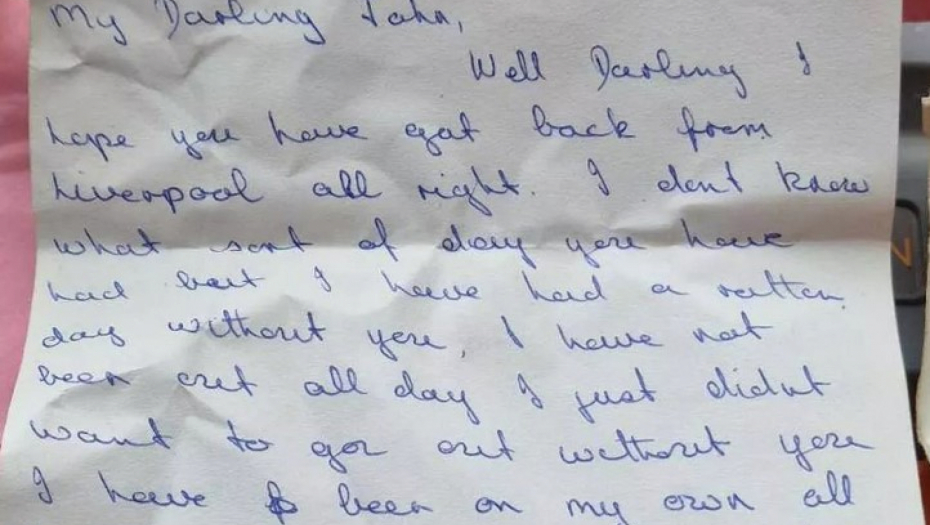 My Darling John,
Well Darling I
hope you have got back from
Liverpool all right. I don't know
what sort of day you have
had but I have had a rotten
day without you, I have not
been out all day I just didnt
want to go out without you
I have been on my own all